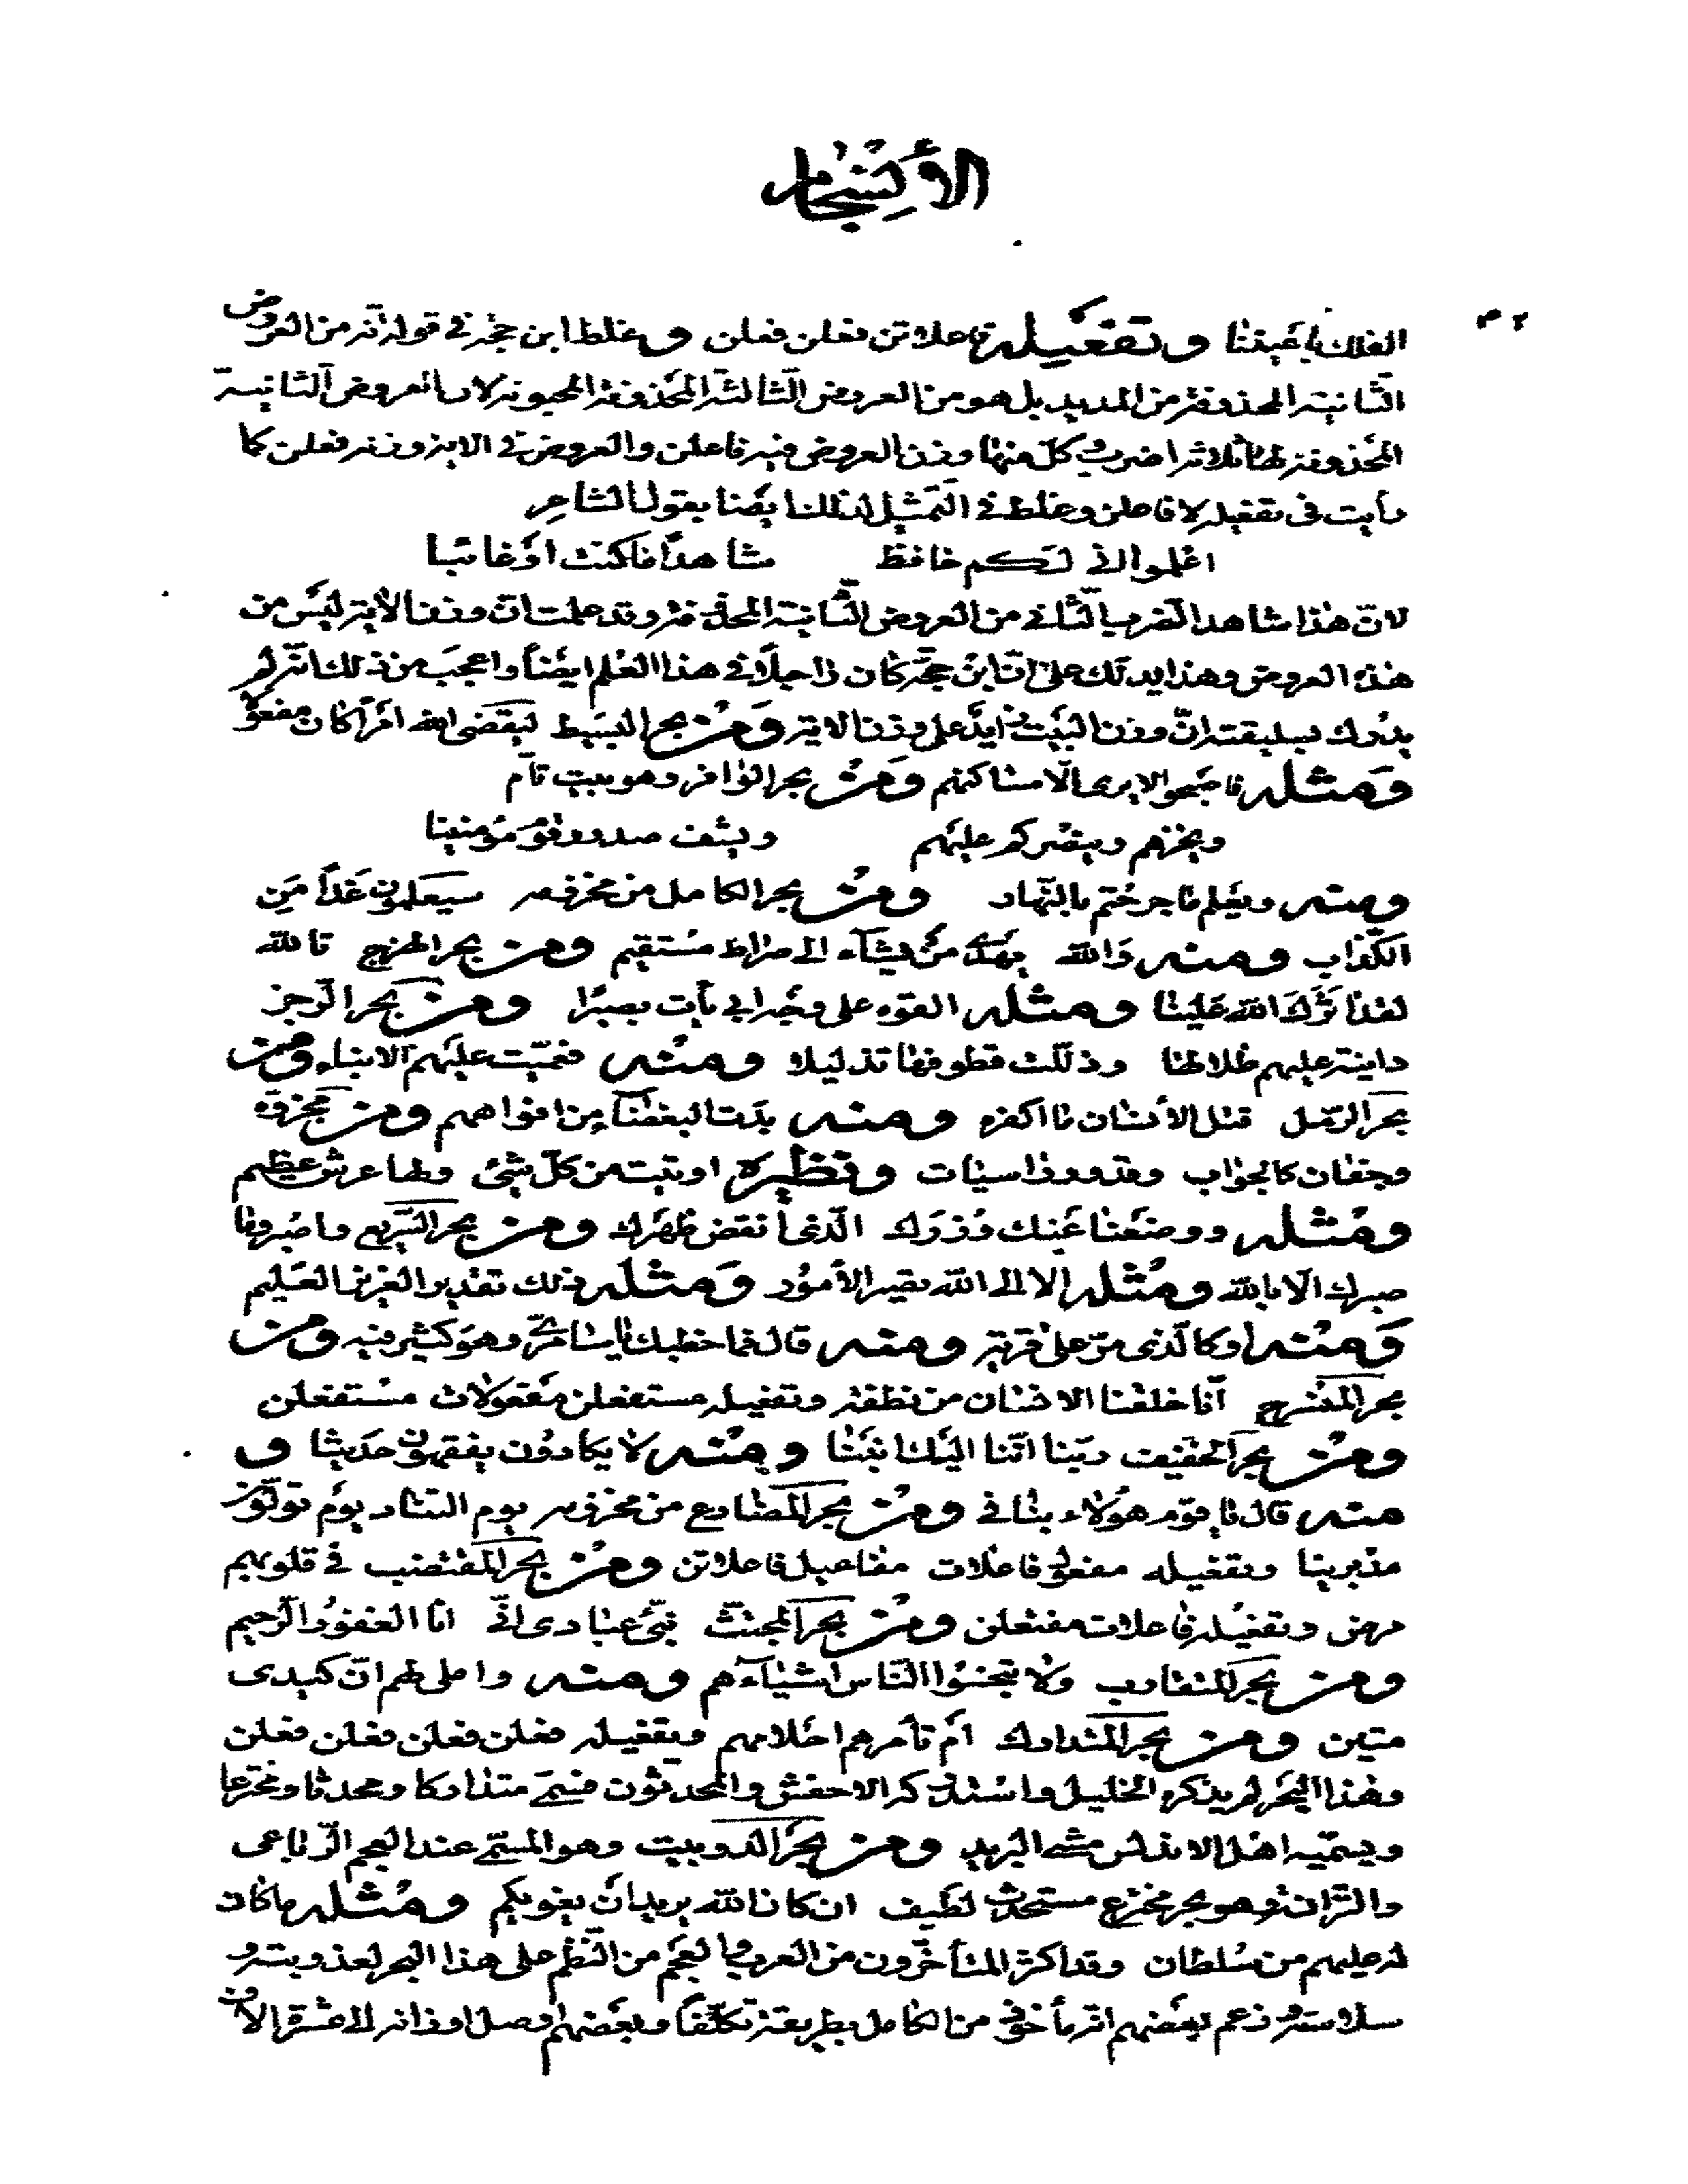 الأنسجام
الفلك بأعيننا وتفعيله فاعلاتن فعلن فعلن وغلط ابن حجة في قوله انّه من العروض
الثّانية المحذوفة من المديد بل هو من العروض الثالثة المحذوفة المخبونة لان العروض الثانية
المحذوفة لها ثلاثة اضرب كل منها وزن العروض فيه فاعلن والعروض في الاية وزنه فعلن كما
رأيت في تفعيله لا فاعلن وغلط في التمثيل لذلك ايضا بقول الشاعر
اعلموا اني لكم حافظ شاهدا ما كنت او غائبا
لانّ هذا شاهد الضرب الثاني من العروض الثانية المحذوفة وقد علمت ان وزن الاية ليس من
هذه العروض وهذا يدلك على انّ ابن حجة كان راجلا في هذا العلم ايضا واعجب من ذلك انه لم
يدرك بسليقته انّ وزن البيت زايد على وزن الاية ومن بحر البسيط ليقضي الله امرا كان مفعولا
ومثله فاصبحوا لا يرى الّا مساكنهم ومن بحر الوافر وهو بيت تام
ويخزهم وينصركم عليهم ويشف صدور قوم مؤمنينا
ومنه ويعلم ما جرحتم بالنّهار ومن بحر الكامل من مجزؤه سيعلمون غدا من
الكذّاب ومنه والله يهدي من يشاء الى صراط مستقيم ومن بحر الهزج تالله
لقد اثرك الله علينا ومثله القوه على وجه ابي يأت بصيرا ومن بحر الرّجز
دانية عليهم ظلالها وذلّلت قطوفها تذليلا ومنه فعميّت عليهم الانباء ومن
بحر الرّمل قتل الأنسان ما اكفره ومنه بدت البغضاء من افواههم ومن مجزؤه
وجفان كالجواب وقدور راسيات ونظيره اوتيت من كلّ شئ ولها عرش عظيم
ومثله ووضعنا عنك وزرك الّذي أنقض ظهرك ومن بحر السّريع واصبر وما
صبرك الّا بالله ومثله الا الى الله تصير الأمور ومثله ذلك تقدير العزيز العليم
ومنه او كالّذي مرّ على قرية ومنه قال فما خطبك يا سامريّ وهو كثير فيه ومن
بحر المنسرح انّا خلقنا الانسان من نطفة وتفعيله مستفعلن مفعولات مستفعلن
ومن بحر الخفيف ربّنا انّنا اليك انبنا ومنه لا يكادون يفقهون حديثا و
منه قال يا قوم هؤلاء بناتي ومن بحر المضارع من مجزؤه يوم التناد يوم تولّون
مدبرينا وتفعيله مفعول فاعلات مفاعيل فاعلاتن ومن بحر المقتضب في قلوبهم
مرض وتفعيله فاعلات مفتعلن ومن بحر المجتثّ نبّئ عبادي انّي انا الغفور الرّحيم
ومن بحر المتقارب ولا تبخسوا النّاس اشياءهم ومنه واملي لهم انّ كيدي
متين ومن بحر المتدارك ام تأمرهم احلامهم وتفعيله فعلن فعلن فعلن فعلن
وهذا البحر لم يذكره الخليل واستدركه الاخفش والمحدثون فسمّي متداركا ومحدثا ومخترعا
ويسمّيه اهل الاندلس مشي البريد ومن بحر الدوبيت وهو المسمّى عند العجم الرّباعي
والترانه وهو بحر مخترع مستحدث لطيف ان كان الله يريد ان يغويكم ومثله ما كان
له عليهم من سلطان وقد اكثر المتأخّرون من العرب والعجم من النّظم على هذا البحر لعذوبته و
سلاسته وزعم بعضهم انه مأخوذ من الكامل بطريقة تكلّفا وبعضهم اوصل اوزانه الى عشرة الاف